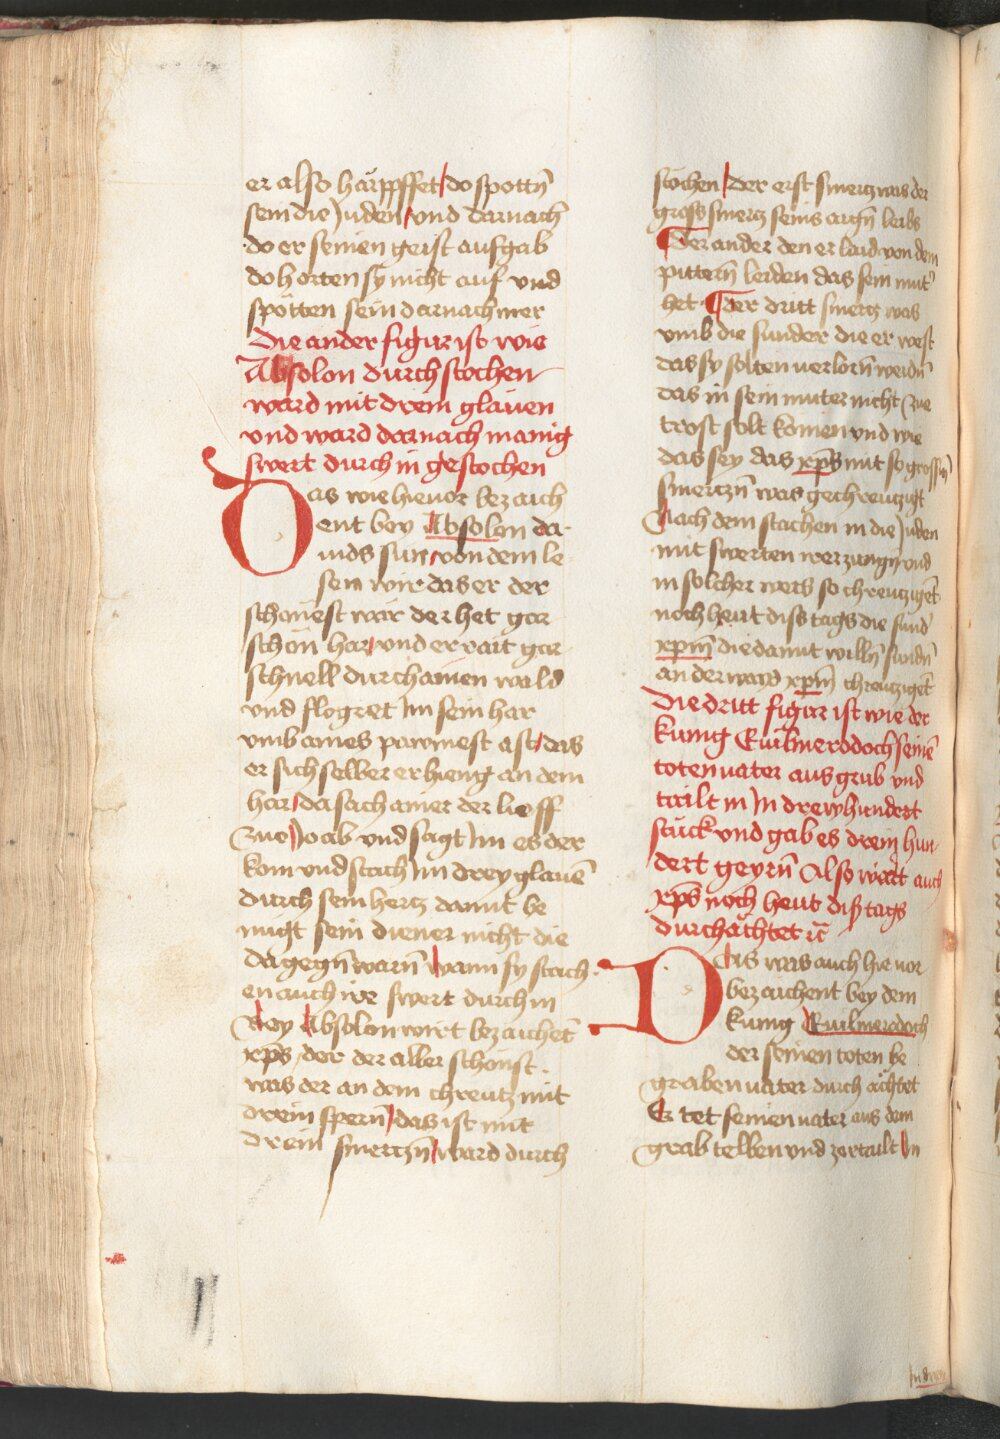 er also harppffet / do spottn̄
sein die Juden / vnd darnach
do er seinen geist aufgab
do horten sy nicht auf vnd
spotten sein darnach mer
Die ander figur ist wie
Absolon durchstochen
ward mit drein glauen
vnd ward darnach manig
swert durch in gestochen
Das wie hieuor bezaich
ent bey Absolon da-
uids sun / von dem le
sen wir das er der
schonest wär der het gar
schön har / vnd er rait gar
schnell durch ainen wald
vnd flogret Im sein har
vmb aines pawmest ast / das
er sich selber erhieng an dem
har / da sach ainer der lieff
zue Joab vnd sagt Im es der
kom vnd stach Im drey glauē
durch sein hertz damit be
nugt sein diener nicht die
da gegn̄ warn̄ / wann sy stach
en auch ire swert durch in
Bey Absolon wirt bezaichet̄
xp̄s / der der aller schonist
was der an dem chreutz mit
drein spern̄ / das ist mit
drein smertzn̄ / ward durch
stochen / Der erst smertz was der
gross smertz seins aign̄ leibs
Der ander den er laid von dem
pittern̄ leiden das sein mut̄
het · Der dritt smertz was
vmb die sunder die er west
das sy solten verlorn̄ werdn̄
das in sein muter nicht zue
trost solt komen vnd wie
das sey das xp̄s mit so grossn̄
smertzn̄ was gechreutzigt
Nach dem stachen in die Juden
mit swerten irer zungn̄ vnd
in solcher weis so chreutziget̄
noch heut diss tags die sund̄
xp̄m̄ die damit willn̄ sundn̄
an der ways xp̄m̄ chreutziget̄
Die dritt figur ist wie der
kunig Euilmerodoch seinē
toten uater aus grub vnd
tailt in In drewhundert
stuck vnd gab es drein hun-
dert geyrn̄ Also wart auch
xp̄s noch heut diß tags
durchachtet ꝛc̄
Das was auch hie uor
bezaichent bey dem
kunig Euilmerodoch
der seinen toten be
graben uater durch ächtet
Er tet seinen uater aus dem
grab telben vnd zertailt In